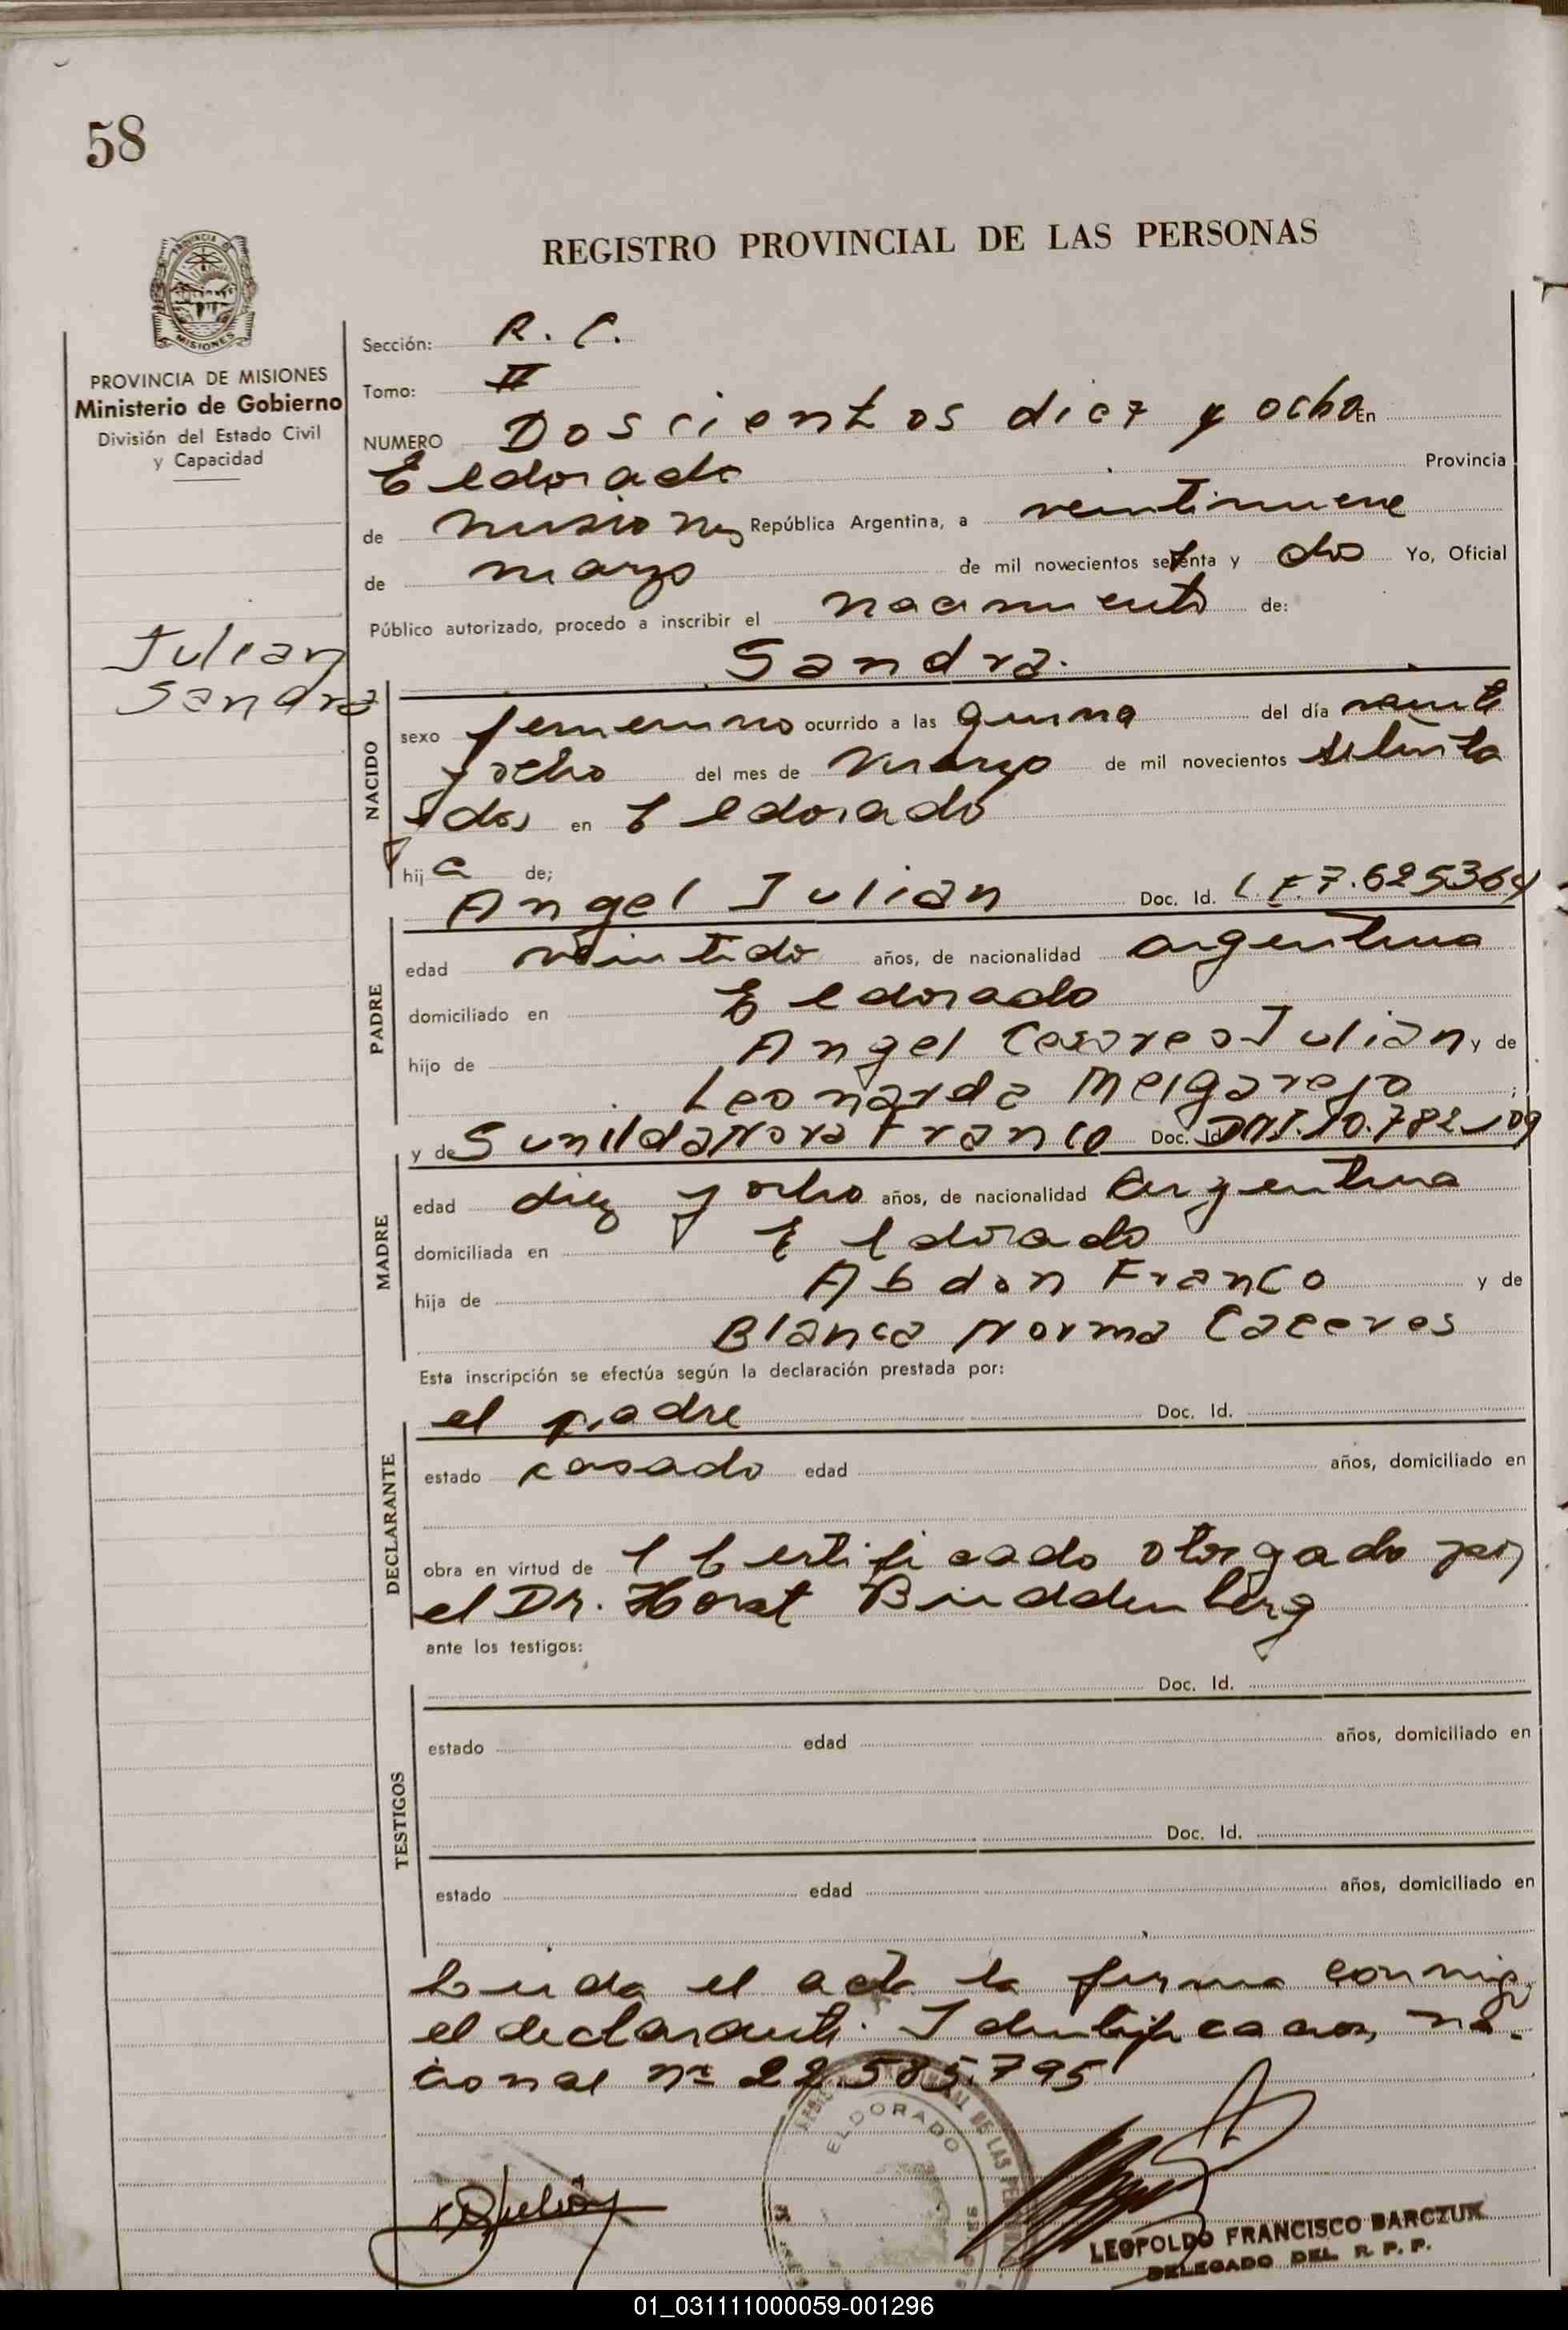 58
REGISTRO PROVINCIAL DE LAS PERSONAS
MISIONES
PROVINCIA DE MISIONES
Ministerio de Gobierno
División del Estado Civil
y Capacidad
Julian
Sandra
Sección: R. C.
Tomo: II
NUMERO Doscientos diez y ocho En
Eldorado Provincia
de Misiones República Argentina, a veintinueve
de marzo de mil novecientos setenta y dos Yo, Oficial
Público autorizado, procedo a inscribir el nacimiento de:
Sandra.
NACIDO
sexo femenino ocurrido a las del día veinte
y ocho del mes de marzo de mil novecientos setenta
y dos en Eldorado
hija de;
Angel Julian Doc. Id. L.E. 7.625364
PADRE
edad veintidos años, de nacionalidad argentina
domiciliado en Eldorado
hijo de Angel Julian y de
Leonarda Melgarejo ;
y de Sunilda Nora Franco Doc. Id. DNI. 10.782.109
MADRE
edad diez y ocho años, de nacionalidad argentina
domiciliada en Eldorado
hija de Abdon Franco y de
Blanca Norma Caceres
Esta inscripción se efectúa según la declaración prestada por:
el padre Doc. Id.
DECLARANTE
estado casado edad años, domiciliado en
obra en virtud de Certificado otorgado por
el Dr. Horst
ante los testigos:
Doc. Id.
TESTIGOS
estado edad años, domiciliado en
Doc. Id.
estado edad años, domiciliado en
Leida el acta la firma conmigo
el declarante. Identificacion na-
cional nº 22.585.795
ELDORADO
LEOPOLDO FRANCISCO BARCZUK
DELEGADO DEL R. P. P.
01_031111000059-001296